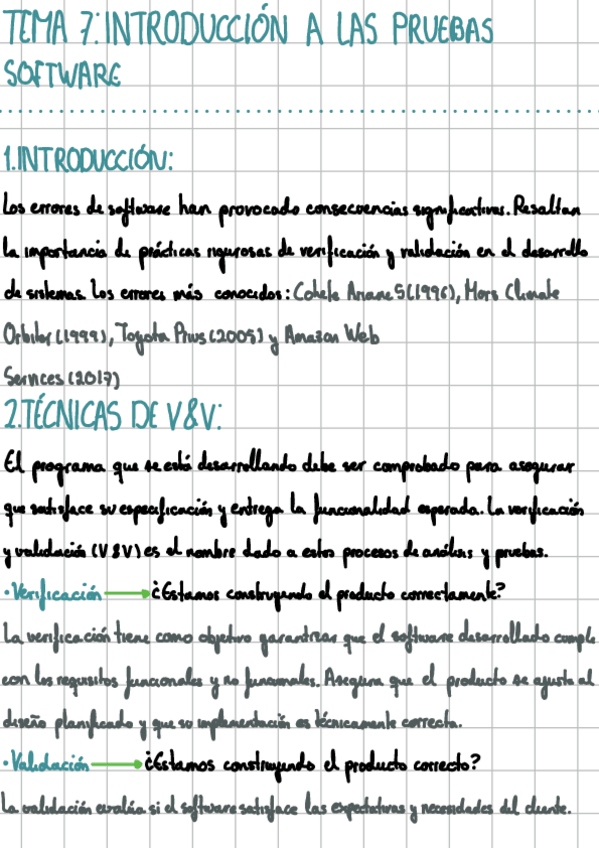 TEMA 7: INTRODUCCIÓN A LAS PRUEBAS
SOFTWARE
1. INTRODUCCIÓN:
Los errores de software han provocado consecuencias significativas. Resaltan
la importancia de prácticas rigurosas de verificación y validación en el desarrollo
de sistemas. Los errores más conocidos: Cohete Ariane 5 (1996), Mars Climate
Orbiter (1999), Toyota Prius (2005) y Amazon Web
Services (2017)
2. TÉCNICAS DE V&V:
El programa que se está desarrollando debe ser comprobado para asegurar
que satisface su especificación y entrega la funcionalidad esperada. La verificación
y validación (V&V) es el nombre dado a estos procesos de análisis y pruebas.
• Verificación → ¿Estamos construyendo el producto correctamente?
La verificación tiene como objetivo garantizar que el software desarrollado cumple
con los requisitos funcionales y no funcionales. Asegura que el producto se ajusta al
diseño planificado y que su implementación es técnicamente correcta.
• Validación → ¿Estamos construyendo el producto correcto?
La validación evalúa si el software satisface las expectativas y necesidades del cliente.